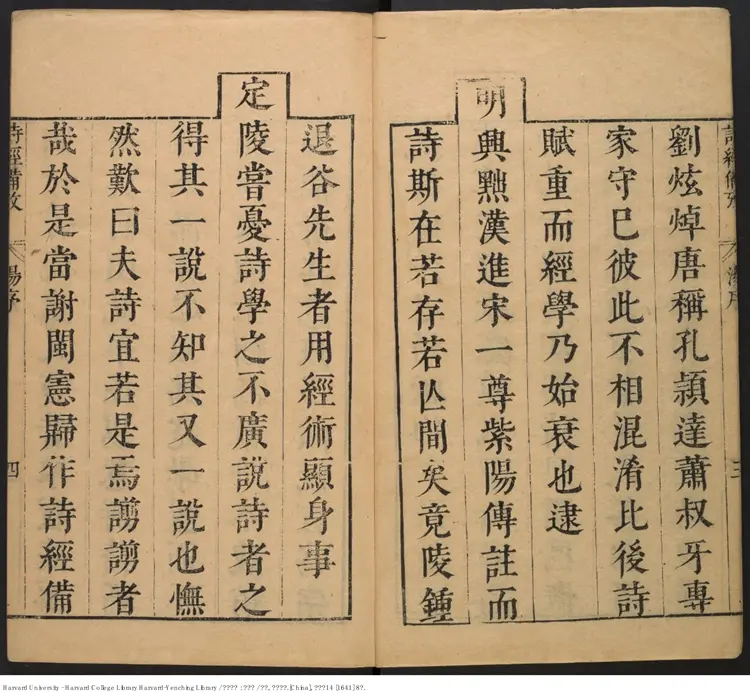 劉炫焯唐稱孔頴達蕭叔牙專
家守已彼此不相混淆比後詩
賦重而經學乃始衰也逮
明興黜漢進宋一尊紫陽傳註而
詩斯在若存若亾間矣竟陵鍾
三
退谷先生者用經術顯身事
定陵嘗憂詩學之不廣說詩者之
得其一說不知其又一說也憮
然歎曰夫詩宜若是焉謭謭者
哉於是當謝閩憲歸作詩經備
詩經備攷
湯序
四
Harvard University - Harvard College Library Harvard-Yenching Library / ???? : ??? / ??, ????. [China], ???14 [1641] 8?.